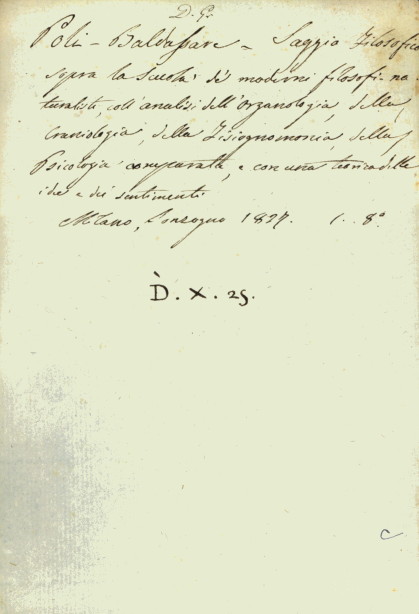 D. G.
Poli - Baldassare - Saggio Filosofico
sopra la scuola de' moderni filosofi na-
turalisti, coll'analisi dell'organologia, della
craniologia, della Fisiognomonia, della
Psicologia comparata, e con una teorica delle
idee e dei sentimenti
Milano, Sonzogno 1827. 1. 8°
D. X. 25.
C